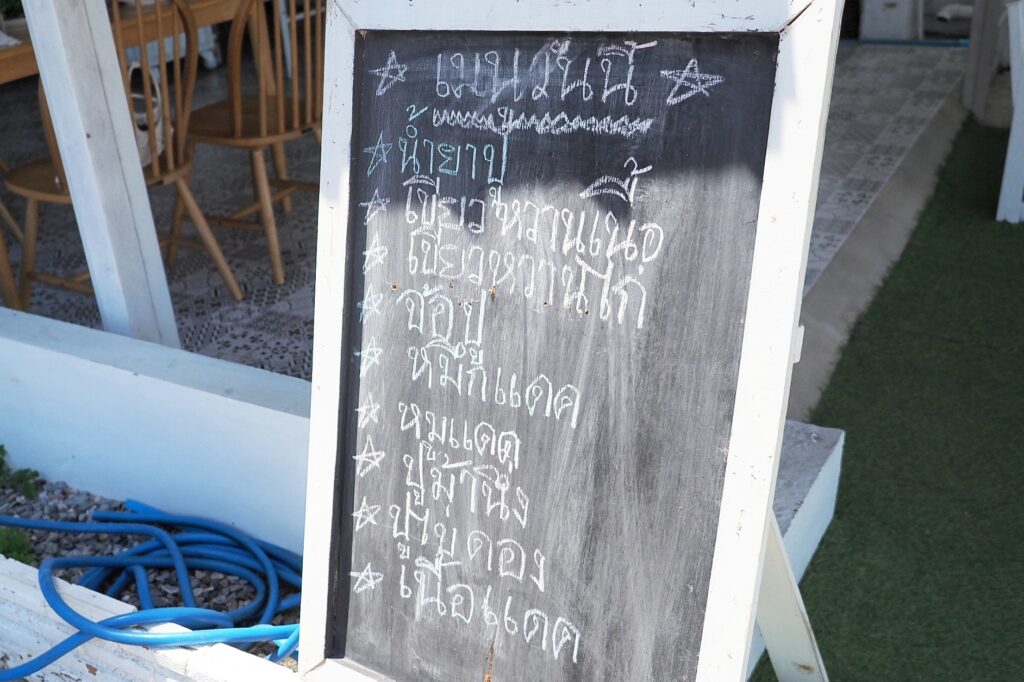 เมนูวันนี้
น้ำยาปู
เขียวหวานเนื้อ
เขียวหวานไก่
จ้อปู
หมึกแดดดี
หมูแดด
ปูม้านึ่ง
ปูไข่ดอง
เนื้อแดด